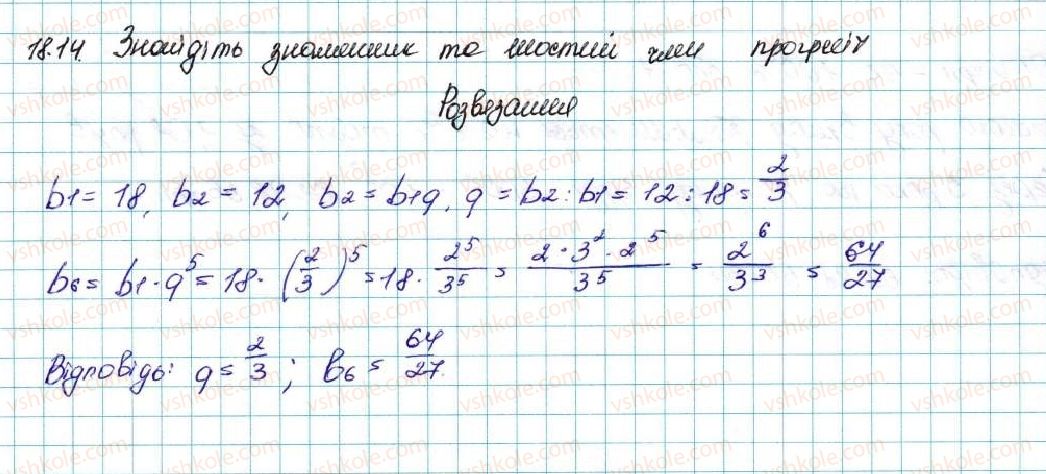 18.14. Знайдіть знаменник та шостий член прогресії
Розвязання
b₁ = 18, b₂ = 12, b₂ = b₁q, q = b₂ : b₁ = 12 : 18 = 2/3
b₆ = b₁ · q⁵ = 18 · (2/3)⁵ = 18 · 2⁵/3⁵ = 2 · 3² · 2⁵/3⁵ = 2⁶/3³ = 64/27
Відповідь: q = 2/3 ; b₆ = 64/27